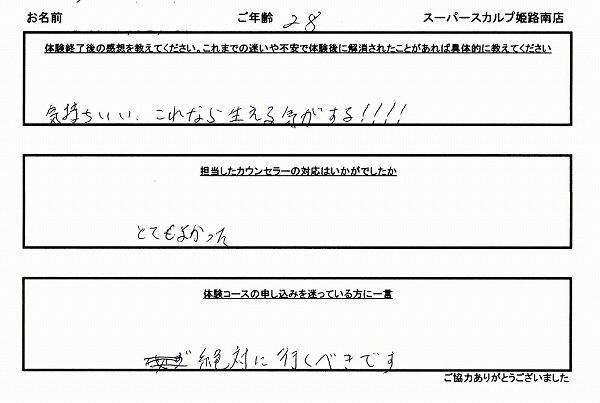 お名前 ご年齢 28 スーパースカルプ姫路南店
体験終了後の感想を教えてください。これまでの迷いや不安で体験後に解消されたことがあれば具体的に教えてください
気持ちいい、これなら生える気がする!!!!
担当したカウンセラーの対応はいかがでしたか
とてもよかった
体験コースの申し込みを迷っている方に一言
絶対に行くべきです
ご協力ありがとうございました